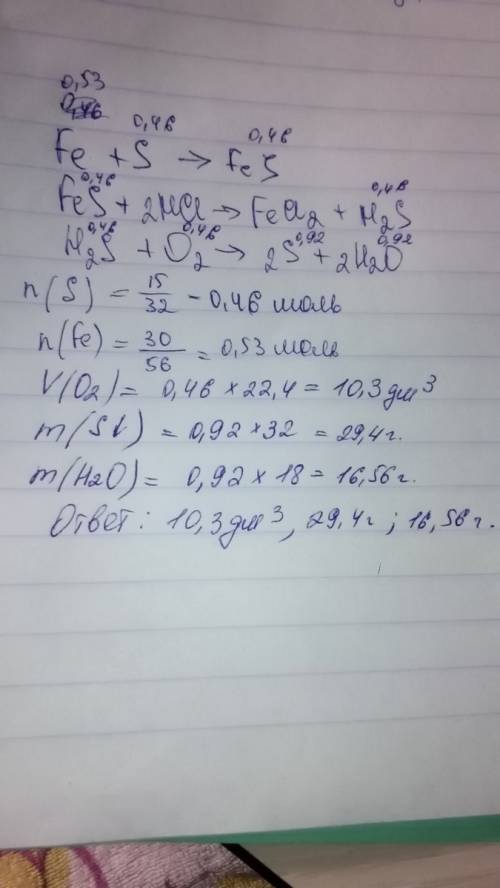 0,53
0,46 0,46
Fe + S → FeS
0,46 0,46
FeS + 2HCl → FeCl2 + H2S
0,46 0,46 0,92 0,92
H2S + O2 → 2S + 2H2O
n(S) = 15/32 - 0,46 моль
n(Fe) = 30/56 = 0,53 моль
V(O2) = 0,46 × 22,4 = 10,3 дм³
m(S↓) = 0,92 × 32 = 29,4 г.
m(H2O) = 0,92 × 18 = 16,56 г.
Ответ: 10,3 дм³, 29,4 г; 16,56 г.